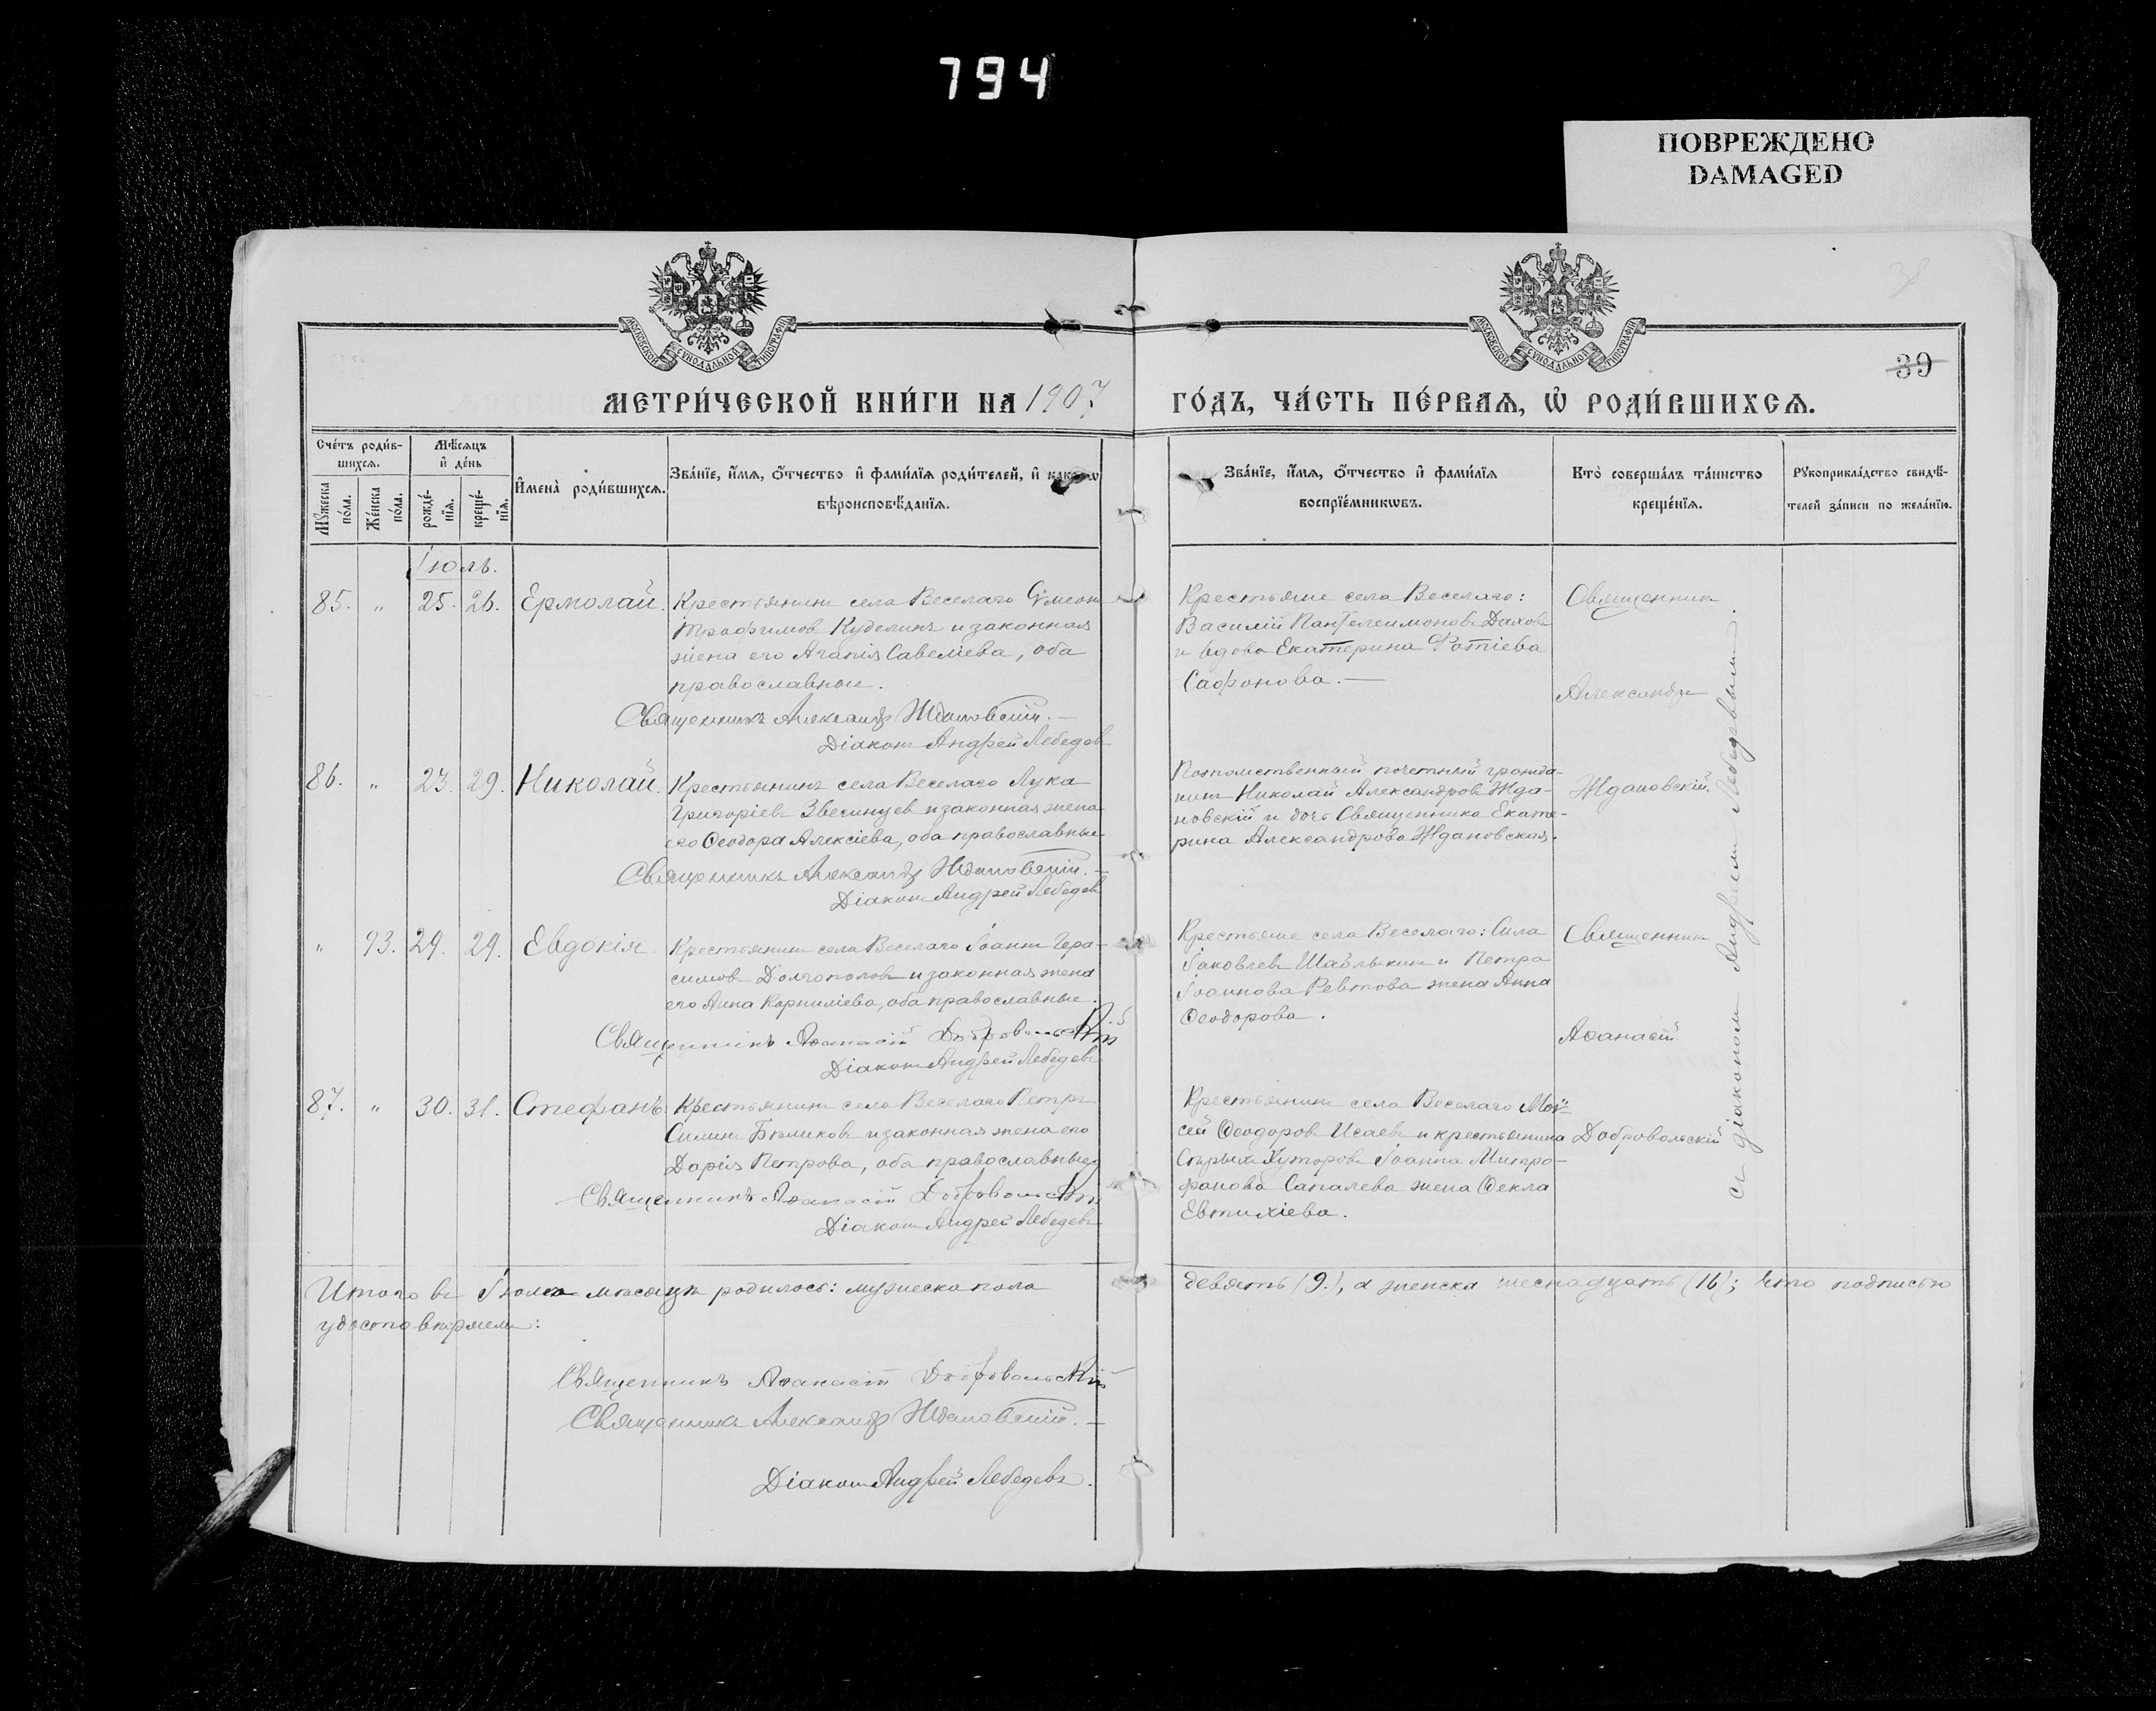 794
ПОВРЕЖДЕНО
DAMAGED
МОСКОВСКОЙ СѴНОДАЛЬНОЙ ТИПОГРАФІИ
МОСКОВСКОЙ СѴНОДАЛЬНОЙ ТИПОГРАФІИ
38
39
МЕТРИ́ЧЕСКОЙ КНИ́ГИ НА 1907
ГО́ДЪ, ЧА́СТЬ ПЕ́РВАѦ, Ѡ҆ РОДИ́ВШИХСѦ.
Сче́тъ роди́в-
шихсѧ.
Мꙋ́жеска по́ла.
Же́нска по́ла.
Мѣ́сѧцъ
и҆ де́нь
рожде́-
нїѧ.
креще́-
нїѧ.
И҆мена̀ роди́вшихсѧ.
Зва́нїе, и҆́мѧ, ѻ҆́тчество и҆ фами́лїѧ роди́телей, и҆ како́гѡ
вѣроисповѣ́данїѧ.
Зва́нїе, и҆́мѧ, ѻ҆́тчество и҆ фами́лїѧ
воспрїе́мникѡвъ.
Кто̀ соверша́лъ та́инство
креще́нїѧ.
Рꙋкоприкла́дство свидѣ́-
телей за́писи по жела́нїю.
Іюль.
85. " 25. 26. Ермолай.
Крестьянинъ села Веселаго Сѵмеонъ
Трофимовъ Куделинъ и законная
жена его Агапія Савеліева, оба
православные.
Священникъ Александръ Ждановскій.
Діаконъ Андрей Лебедевъ
Крестьяне села Веселаго:
Василій Пантелеимоновъ Даховъ
и вдова Екатерина Фотіева
Сафонова.
Священникъ
Александръ
Ждановскій.
86. " 23. 29. Николай.
Крестьянинъ села Веселаго Лука
Григоріевъ Звегинцев и законная жена
его Ѳеодора Алексіева, оба православные
Священникъ Александръ Ждановскій.
Діаконъ Андрей Лебедевъ
Потомственный почетный гражда-
нинъ Николай Александровъ Жда-
новскій и дочь Священника Екате-
рина Александрова Ждановская.
" 93. 29. 29. Евдокія.
Крестьянинъ села Веселаго Іоаннъ Гера-
симовъ Долгополовъ и законная жена
его Анна Корниліева, оба православные.
Священникъ Аѳанасій Добровольскій
Діаконъ Андрей Лебедевъ
Крестьяне села Веселаго: Сила
Іаковлевъ Шаблыкинъ и Петра
Іоаннова Ревтова жена Анна
Ѳеодорова.
Священникъ
Аѳанасій
Добровольскій
съ діакономъ Андреемъ Лебедевымъ.
87. " 30. 31. Стефанъ.
Крестьянинъ села Веселаго Петръ
Силинъ Бѣликовъ и законная жена его
Дарія Петрова, оба православные
Священникъ Аѳанасій Добровольскій
Діаконъ Андрей Лебедевъ
Крестьянинъ села Веселаго Мои-
сей Ѳеодоровъ Исаевъ и крестьянина
Старыхъ Хуторовъ Іоанна Митро-
фанова Сапалева жена Ѳекла
Евтихіева.
Итого въ Іюлѣ мѣсяцѣ родилось: мужеска пола девять (9.), а женска шеснадцать (16); что подписью
удостовѣряемъ:
Священникъ Аѳанасій Добровольскій
Священникъ Александръ Ждановскій.
Діаконъ Андрей Лебедевъ.